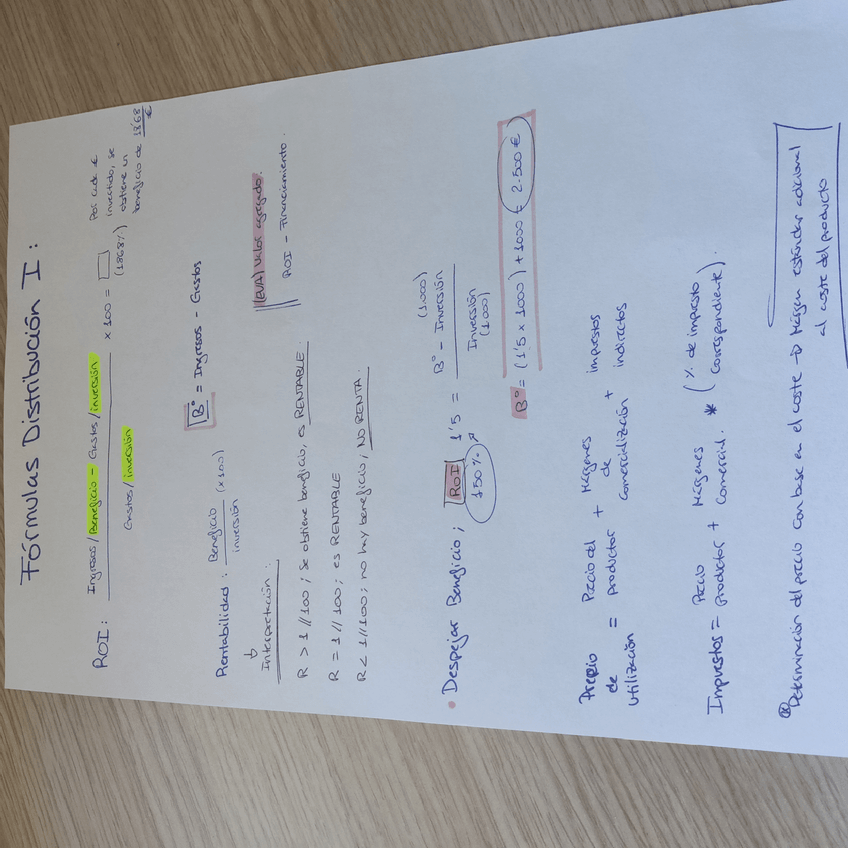 Fórmulas Distribución I:
ROI: Ingresos/Beneficio - Gastos/inversión
Gastos/inversión
x 100 =
(1868%)
Por cada €
invertido, se
obtiene un
beneficio de 18'68
€
Bº = Ingresos - Gastos
Rentabilidad: Beneficio (x100)
inversión
(EVA) Valor agregado.
ROI - Financiamiento.
Interpretación:
R > 1//100; se obtiene beneficio, es RENTABLE.
R = 1//100; es RENTABLE
R < 1//100; no hay beneficio, NO RENTA.
• Despejar Beneficio; ROI 1'5 = Bº - Inversión (1.000)
Inversión
(1.000)
150%
Bº = (1'5 x 1000) + 1000 = 2.500 €
Precio Precio del Márgenes impuestos
de = productor + de +
utilización comercialización indirectos
Precio Márgenes (% de impuesto
Impuestos = productor + comercial. * correspondiente).
(*) Determinación del precio con base en el coste → Márgen estándar adicional
al coste del producto